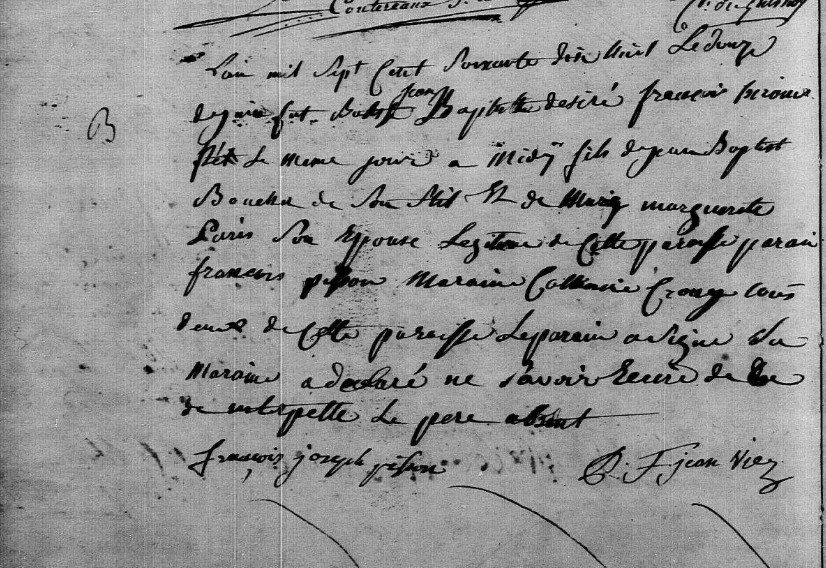 Coutereaux
B
Lan mil Sept Cent Soixante dix huit Le douze
de juin fut Batisé jean Baptiste desiré françois
Le meme jour a Midy fils de jean Baptist
de Son Stil Et de Marie marguerite
Paris Son Epouse Legitime de Cette paroisse parain
francois pisson Maraine Catherine Crouy tous
deux de Cette paroisse Le parain a Signé La
Maraine a declaré ne Savoir Ecrire de Ce
de interpelle Le pere absent
françois joseph pisson
F. jean Viez